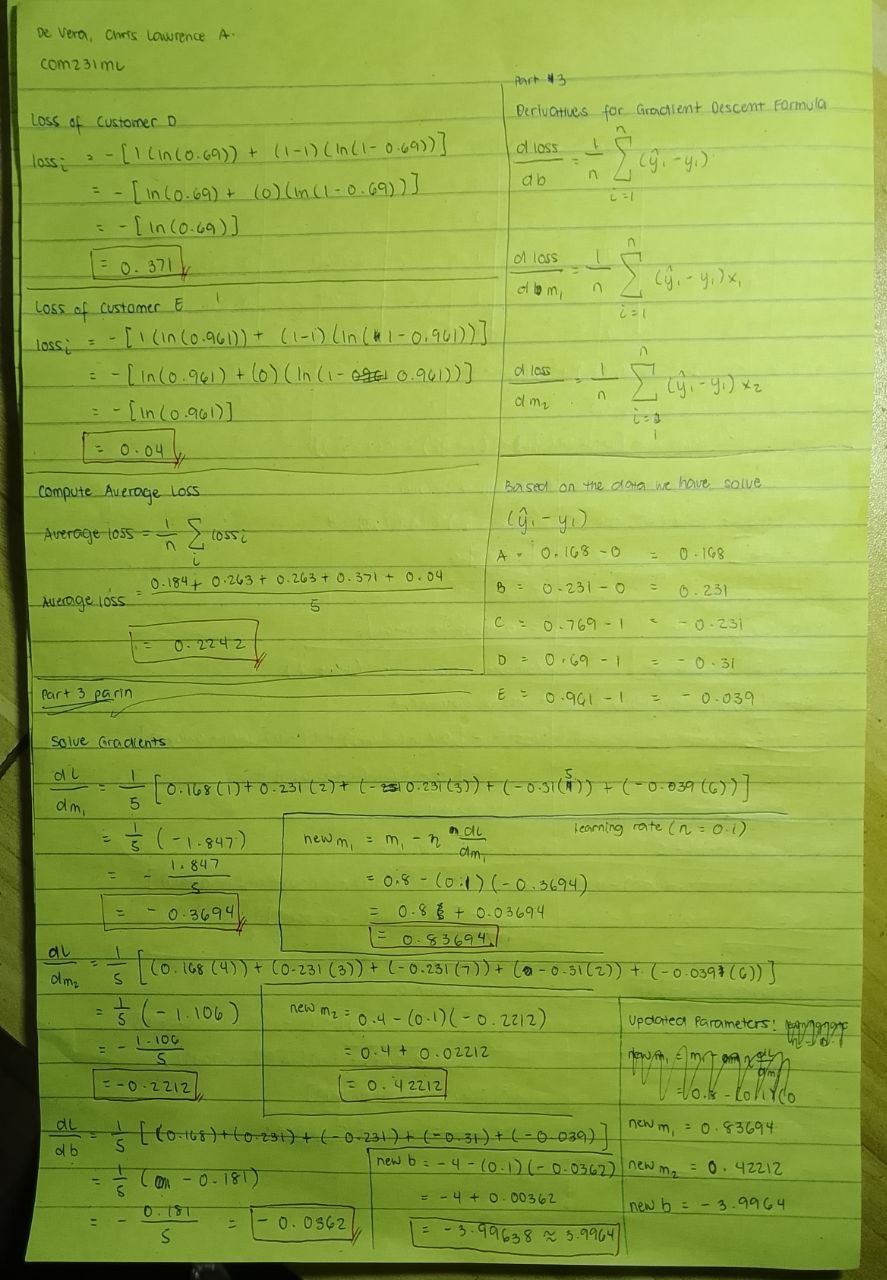 De Vera, Chris Lawrence A.
COM231ML
Loss of Customer D
loss i = - [1 (ln(0.69)) + (1-1) (ln(1-0.69))]
= - [ln(0.69) + (0)(ln(1-0.69))]
= - [ln(0.69)]
= 0.371
Loss of Customer E
loss i = - [1 (ln(0.961)) + (1-1) (ln(1-0.961))]
= - [ln(0.961) + (0) (ln(1- 0.961))]
= - [ln(0.961)]
= 0.04
Compute Average Loss
Average loss = 1/n Σ i loss i
Average loss = 0.184 + 0.263 + 0.263 + 0.371 + 0.04 / 5
= 0.2242
Part 3 parin
Part #3
Derivatives for Gradient Descent Formula
d loss / db = 1/n Σ n i=1 (ŷ₁ - y₁)
d loss / d m₁ = 1/n Σ n i=1 (ŷ₁ - y₁) x₁
d loss / d m₂ = 1/n Σ n i=1 (ŷ₁ - y₁) x₂
Based on the data we have, solve
(ŷ₁ - y₁)
A = 0.168 - 0 = 0.168
B = 0.231 - 0 = 0.231
C = 0.769 - 1 = - 0.231
D = 0.69 - 1 = - 0.31
E = 0.961 - 1 = - 0.039
Solve Gradients
dL / dm₁ = 1/5 [0.168(1) + 0.231(2) + (-0.231(3)) + (-0.31(5)) + (-0.039(6))]
= 1/5 (-1.847)
= - 1.847 / 5
= - 0.3694
new m₁ = m₁ - η dL / dm₁
learning rate (η = 0.1)
= 0.8 - (0.1) (-0.3694)
= 0.8 + 0.03694
= 0.83694
dL / dm₂ = 1/5 [(0.168(4)) + (0.231(3)) + (-0.231(7)) + (-0.31(2)) + (-0.039(6))]
= 1/5 (-1.106)
= - 1.106 / 5
= -0.2212
new m₂ = 0.4 - (0.1)(-0.2212)
= 0.4 + 0.02212
= 0.42212
dL / db = 1/5 [(0.168) + (0.231) + (-0.231) + (-0.31) + (-0.039)]
= 1/5 (-0.181)
= - 0.181 / 5 = - 0.0362
new b = -4 - (0.1)(-0.0362)
= -4 + 0.00362
= -3.99638 ≈ 3.9964
Updated Parameters:
new m₁ = 0.83694
new m₂ = 0.42212
new b = - 3.9964